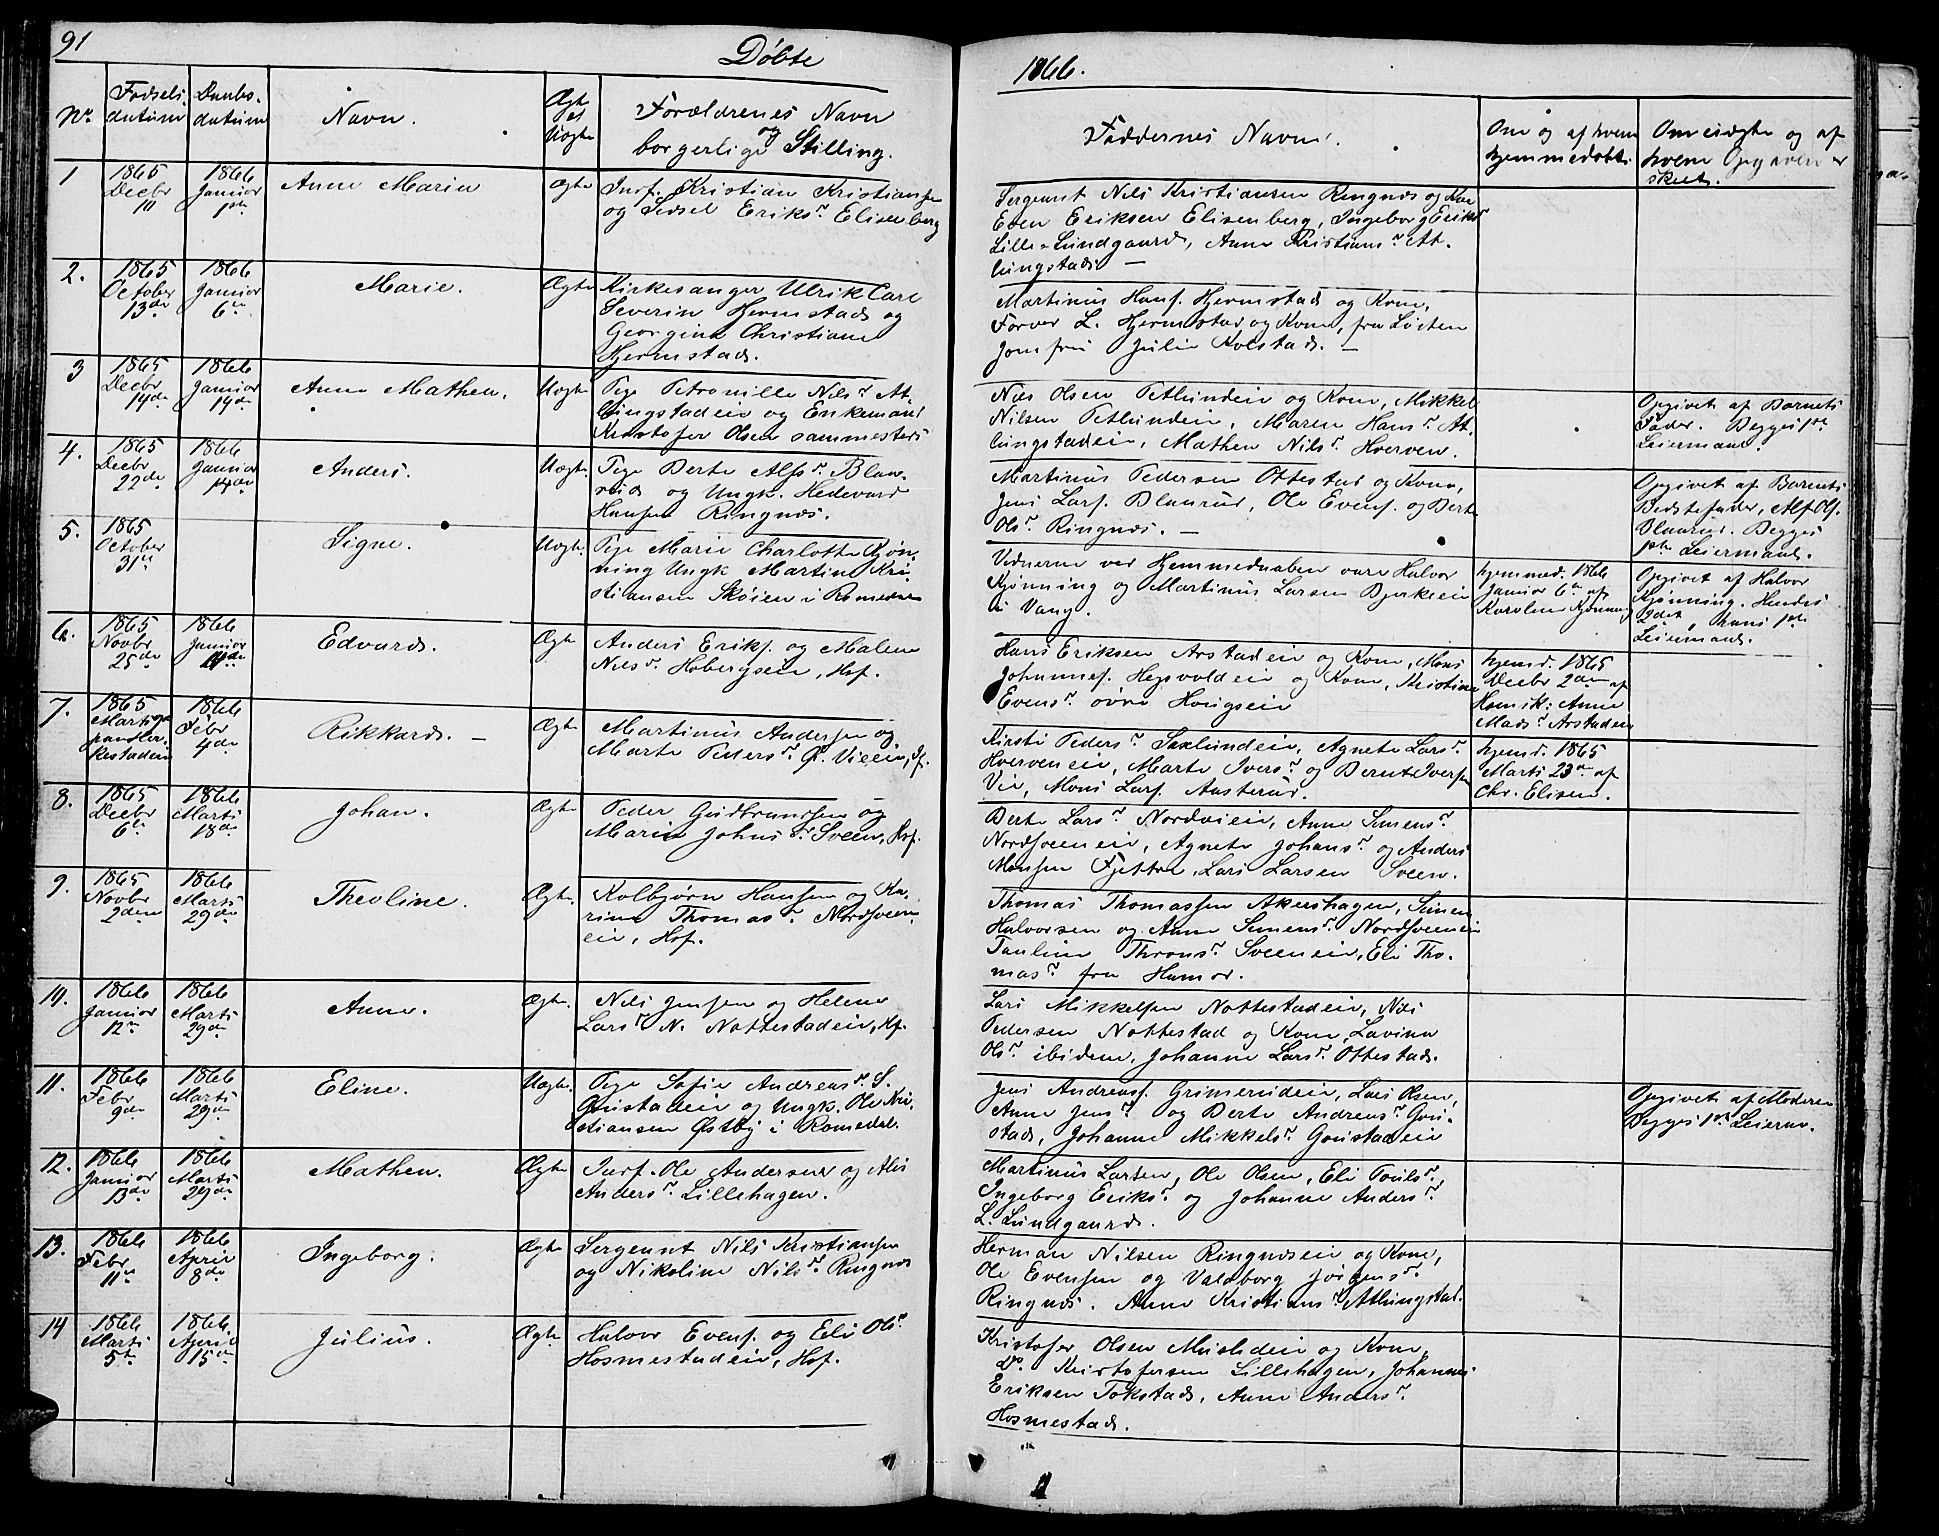 91
Døbte
1866.
No.
Fødsels-
datum
Daabs-
datum
Navn.
Ægte
el
Uægte
Forældrenes Navn
og
borgerlige Stilling.
Faddernes Navn.
Om og af hvem
hjemmedøbt.
Om uægte og af
hvem Opgaven er
skeet.
1
1865
Decbr
10
1866
Januar
1ste
Anne Marie
Ægte
Indf. Kristian Kristiansen
og Sidsel Eriksr. Elisenberg
Sergeant Nils Kristiansen Ringnæs og Kone
Even Eriksen Elisenberg, Ingeborg Eriksr
Lille-Lundgaard, Anne Kristiansr. At-
lungstad. —
2.
1865
October
13de
1866
Januar
6te
Marie.
Ægte
Kirkesanger Ulrik Carl
Severin Hjermstad og
Georgine Christiane
Hjermstad.
Martinus Hans. Hjermstad og Kone,
Farver L. Hjermstad og Kone, fra Løiten
Jomfru Julie Kolstad. —
3
1865
Decbr
14de
1866
Januar
14de
Anne Mathea.
Uægte
Pige Petronille Nilsr. At-
lungstadeie og Enkemand
Kristofer Olsen sammesteds
Nils Olsen Petlundeie og Kone, Mikkel
Nilsen Petlundeie, Maren Hansr. At-
lungstadeie, Mathea Nilsr. Hverven.
Opgivet af Barnets
Fader. Begges 1ste
Leiermaal.
4.
1865
Decbr
22de
1866
Januar
14de
Anders.
Uægte
Pige Berte Alfsr. Blaa-
rud og Ungk. Hedevard
Hansen Ringnæs.
Martinus Pedersen Ottestad og Kone,
Jens Lars. Blaarud, Ole Evens. og Berte
Olsr. Ringnæs. —
Opgivet af Barnets
Bedstefader, Alf Ols.
Blaarud. Begges
1ste Leiermaal.
5.
1865
October
31te
Signe.
Uægte
Pige Marie Charlotte Kjøn-
ning Ungk Martin Kri-
stiansen Skøien i Romedal
Vidnerne ved Hjemmedaaben vare Halvor
Kjønning og Martinus Larsen Bjerkeeie
i Vang.
hjemmed. 1866
Januar 6te af
Karoline Kjønning
Opgivet af Halvor
Kjønning. Hendes
2det, hans 1ste
Leiermaal.
6.
1865
Novbr
25de
1866
Januar
Edvard.
Ægte
Anders Eriks. og Malene
Nilsr. Hobergseie, Hsf.
Hans Eriksen Arstadeie og Kone, Mons
Johannes. Hegsvoldeie og Kone, Kristine
Evensr. øvre Hougseie
hjemd. 1865
Decbr 2den af
Hemik: Anne
Madsr. Arstadeie
7.
1865
Marts
1866
Febr
4de
Rikkard. —
Ægte
Martinus Andersen og
Marte Pedersr. Ø. Vieeie, If.
Kirsti Pedersr. Saxlundeie, Agnete Larsr.
Hverveneie, Marte Iversr. og Bernt Iversen
Vie, Mons Lars. Aasterud.
hjemd. 1865
Marts 23de af
Chr. Elisen.
8.
1865
Decbr
6te
1866
Marts
18de
Johan.
Ægte
Peder Gudbrandsen og
Marie Johnsdr. Sveen, Hsf.
Berte Larsr. Nordvieie, Anne Simensr.
Nordsveeneie, Agnete Johansr. og Anders
Monsen Fjettre, Lars Larsen Sveen.
9.
1865
Novbr
2den
1866
Marts
29de
Theoline.
Ægte.
Kolbjørn Hansen og Ka-
rine Thomasr. Nordsveen-
eie, Hsf.
Thomas Thomassen Akershagen, Simen
Halvorsen og Anne Simensr. Nordsveeneie
Pauline Thronsr. Sveeneie, Eli Tho-
masr. fra Hamar.
10.
1866
Januar
12te
1866
Marts
29de
Anne.
Ægte.
Nils Jensen og Helene
Larsr. N. Nottestadeie, Hsf.
Lars Mikkelsen Nottestadeie, Nils
Pedersen Nottestad og Kone, Lavina
Olsr. ibidem, Johanne Larsr. Ottestad.
11.
1866
Febr
9de
1866
Marts
29de
Eline.
Uægte.
Pige Sofie Andreasr. S.
Gaustadeie og Ungk. Ole Kri-
stiansen Østby i Romedal.
Jens Andreass. Grimerudeie, Lars Olsen,
Anne Jensr. og Berte Andreasr. Gou-
stad, Johanne Mikkelsr. Goustadeie
Opgivet af Moderen
Begges 1ste Leierm.
12.
1866
Januar
13de
1866
Marts
29de
Mathea.
Ægte
Indf. Ole Andersen og Alis
Andersr. Lillehagen.
Martinus Larsen, Ole Olsen, Eli Poulsr.
Ingeborg Eriksr. og Johanne Andersr.
L. Lundgaard.
13.
1866
Febr
11te
1866
April
8de
Ingeborg.
Ægte
Sergeant Nils Kristiansen
og Nikoline Nilsr. Ringnæs
Herman Nilsen Ringnæseie og Kone,
Ole Evensen og Valdborg Jørgensr.
Ringnæs. Anne Kristiansr. Atlungstad.
14
1866
Marts
5te
1866
April
15de
Julius.
Ægte
Halvor Evens. og Eli Olsr.
Hosmestadeie, Hsf.
Kristofer Olsen Musludeie og Kone,
Do. Kristofersen Lillehagen, Johannes
Eriksen Tokstad, Anne Andersr.
Hosmestad.